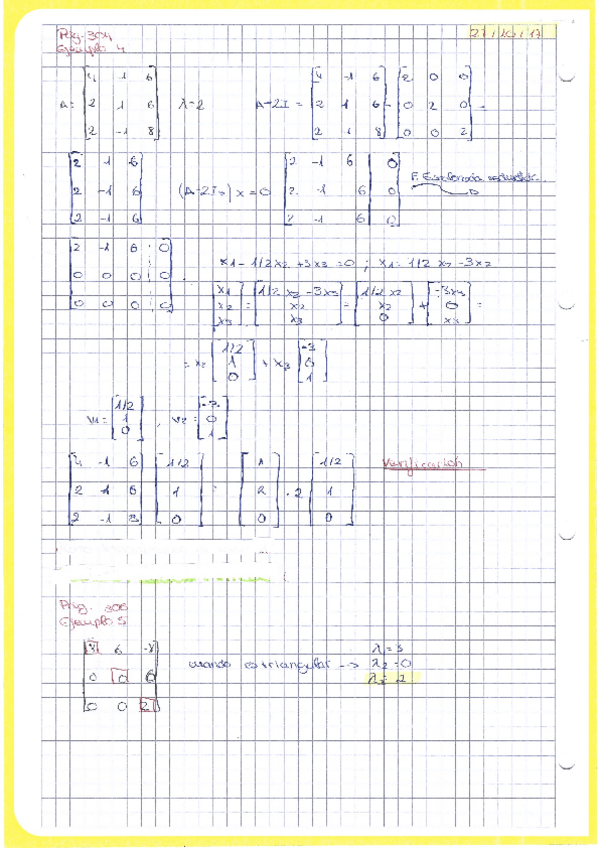 Pág. 304 27/10/17
Ejemplo 4
A = [4 -1 6; 2 1 6; 2 -1 8] λ=2 A-2I = [4 -1 6; 2 1 6; 2 1 8] - [2 0 0; 0 2 0; 0 0 2] =
[2 -1 6; 2 -1 6; 2 -1 6] (A-2I₂) x = 0 [2 -1 6 | 0; 2 -1 6 | 0; 2 -1 6 | 0] F. Escalonada
[2 -1 6 0; 0 0 0 0; 0 0 0 0] x1 - 1/2x2 + 3x3 = 0 ; x1 = 1/2 x2 - 3x3
[x1; x2; x3] = [1/2 x2 - 3x3; x2; x3] = [1/2 x2; x2; 0] + [-3x3; 0; x3] =
= x2 [1/2; 1; 0] + x3 [-3; 0; 1]
v1 = [1/2; 1; 0] , v2 = [-3; 0; 1]
[4 -1 6; 2 1 6; 2 -1 8] [1/2; 1; 0] = [1; 2; 0] = 2 [1/2; 1; 0] Verificación
Pág. 306
Ejemplo 5
[3 6 -8; 0 0 6; 0 0 2] cuando es triangular --> λ=3
λ2=0
λ3=2